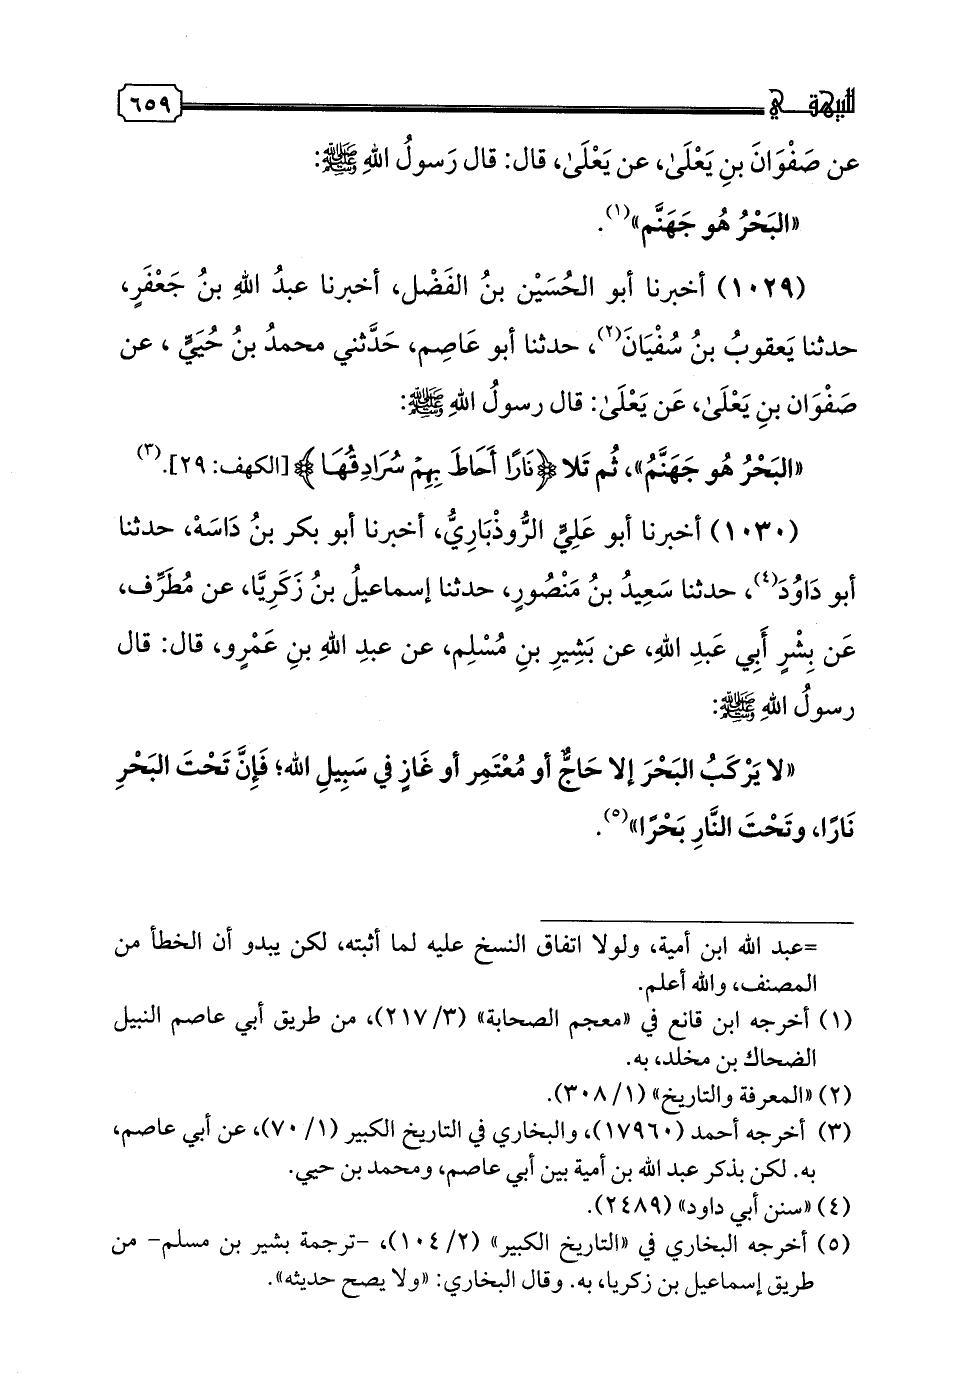 للبيهقي
٦٥٩
عن صَفْوَانَ بنِ يَعْلَىٰ، عن يَعْلَىٰ، قال: قال رَسولُ اللهِ ﷺ:
«البَحْرُ هُو جَهَنَّم»(١).
(١٠٢٩) أخبرنا أبو الحُسَيْن بنُ الفَضْل، أخبرنا عبدُ اللهِ بنُ جَعْفَرٍ،
حدثنا يَعقوبُ بنُ سُفْيَانَ(٢)، حدثنا أبو عَاصِم، حَدَّثني محمدُ بنُ حُيَيٍّ ، عن
صَفْوَان بنِ يَعْلَىٰ، عَن يَعْلَىٰ: قال رسولُ اللهِ ﷺ:
«البَحْرُ هُو جَهَنَّمُ»، ثُم تَلا ﴿نَارًا أَحَاطَ بِهِمْ سُرَادِقُهَا﴾ [الكهف: ٢٩].(٣)
(١٠٣٠) أخبرنا أبو عَلِيٍّ الرُّوذْبَارِيُّ، أخبرنا أبو بكر بنُ دَاسَهْ، حدثنا
أبو دَاوُدَ(٤)، حدثنا سَعِيدُ بنُ مَنْصُورٍ، حدثنا إسماعيلُ بنُ زَكَرِيَّا، عن مُطَرِّف،
عَن بِشْرٍ أَبِي عَبدِ اللهِ، عن بَشِيرِ بنِ مُسْلِم، عن عبدِ اللهِ بنِ عَمْرو، قال: قال
رسولُ اللهِ ﷺ:
«لا يَرْكَبُ البَحْرَ إلا حَاجٌّ أو مُعْتَمِر أو غَازٍ في سَبِيلِ الله؛ فَإِنَّ تَحْتَ البَحْرِ
نَارًا، وتَحْتَ النَّارِ بَحْرًا»(٥).
=عبد الله ابن أمية، ولولا اتفاق النسخ عليه لما أثبته، لكن يبدو أن الخطأ من
المصنف، والله أعلم.
(١) أخرجه ابن قانع في «معجم الصحابة» (٣/ ٢١٧)، من طريق أبي عاصم النبيل
الضحاك بن مخلد، به.
(٢) «المعرفة والتاريخ» (١/ ٣٠٨).
(٣) أخرجه أحمد (١٧٩٦٠)، والبخاري في التاريخ الكبير (١/ ٧٠)، عن أبي عاصم،
به. لكن بذكر عبد الله بن أمية بين أبي عاصم، ومحمد بن حيي.
(٤) «سنن أبي داود» (٢٤٨٩).
(٥) أخرجه البخاري في «التاريخ الكبير» (٢/ ١٠٤)، -ترجمة بشير بن مسلم- من
طريق إسماعيل بن زكريا، به. وقال البخاري: «ولا يصح حديثه».